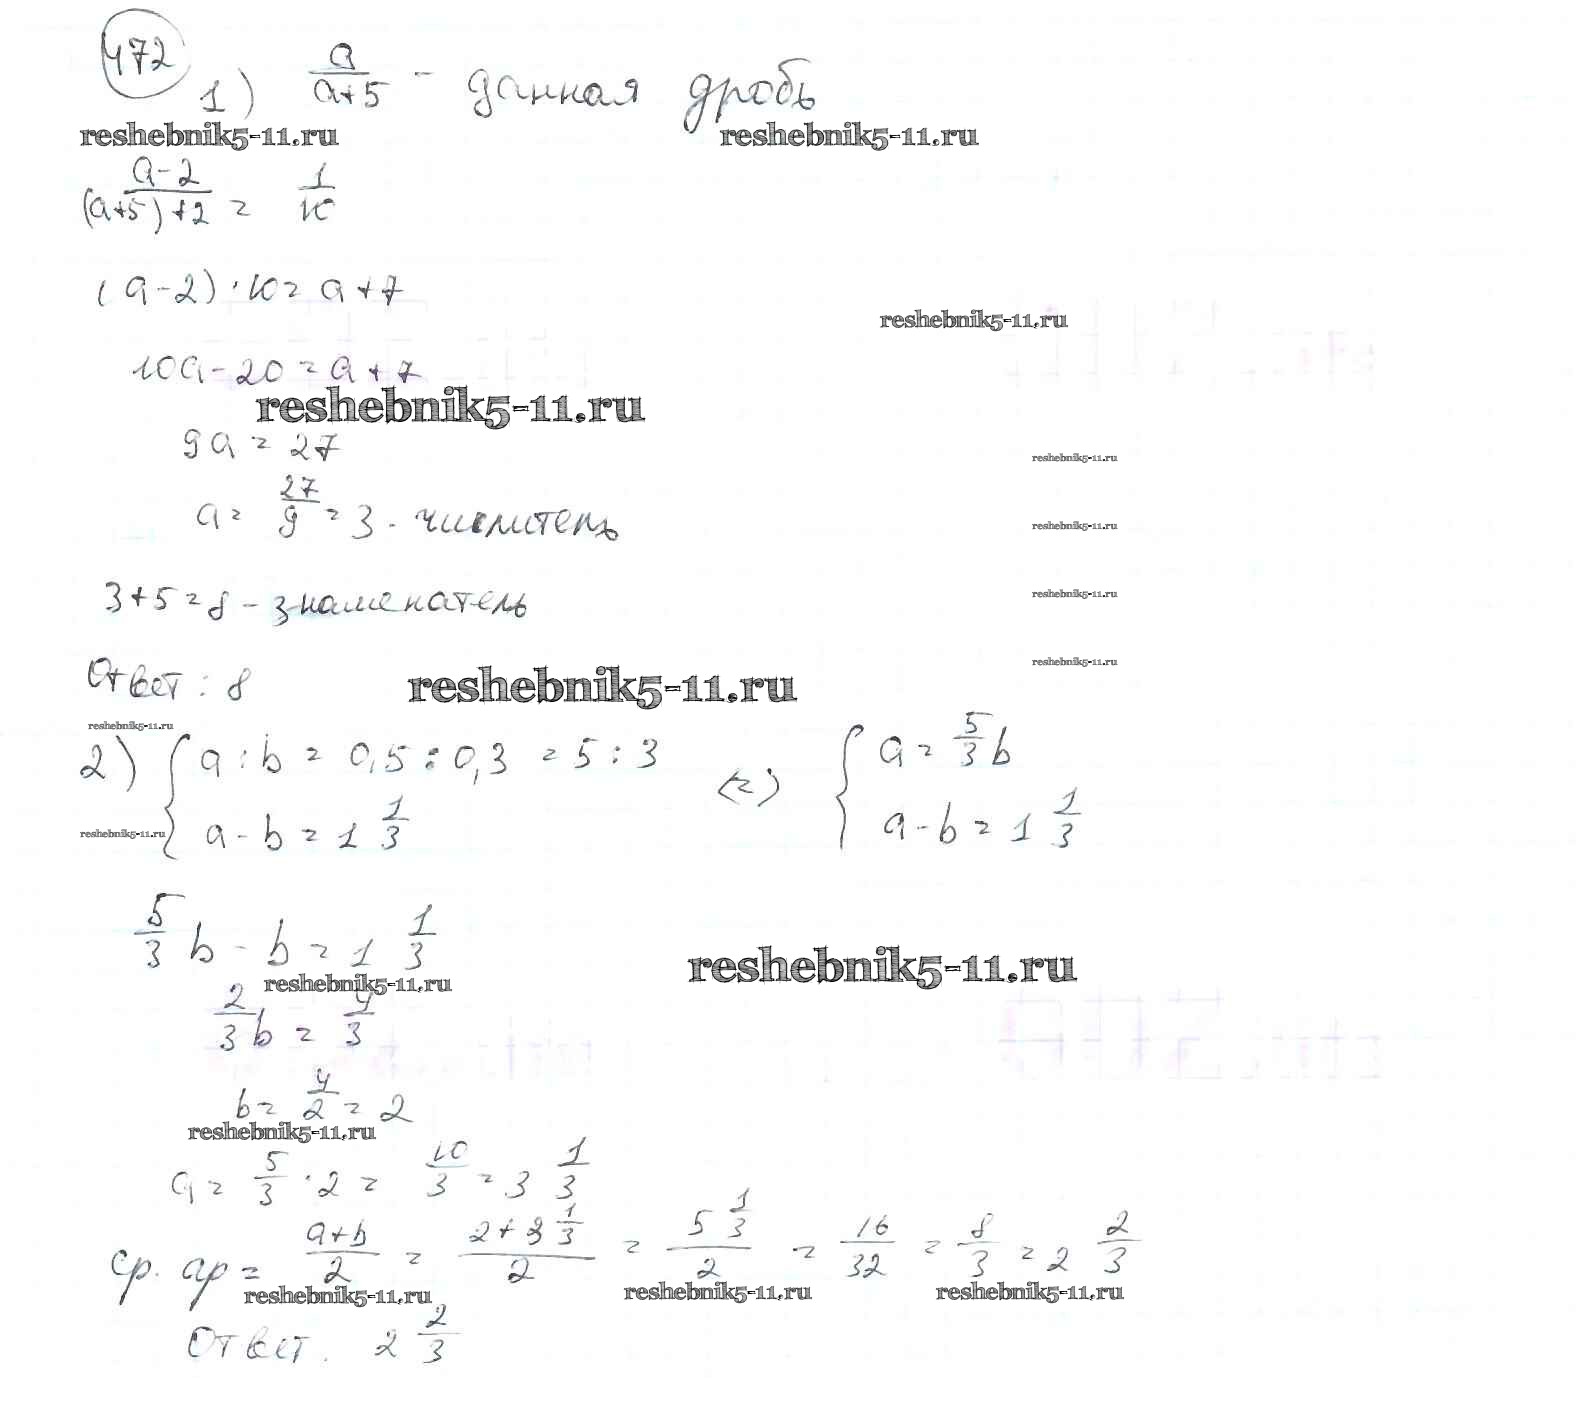 472
1) a/(a+5) - данная дробь
reshebnik5-11.ru reshebnik5-11.ru
(a-2)/((a+5)+2) = 1/10
(a-2)·10 = a+7
reshebnik5-11.ru
10a-20 = a+7
reshebnik5-11.ru
9a = 27
reshebnik5-11.ru
a = 27/9 = 3 - числитель
reshebnik5-11.ru
3+5=8 - знаменатель
reshebnik5-11.ru
reshebnik5-11.ru
Ответ: 8
reshebnik5-11.ru
reshebnik5-11.ru
2) { a:b = 0,5:0,3 = 5:3 <=> { a = 5/3 b
a-b = 1 1/3 a-b = 1 1/3
reshebnik5-11.ru
5/3 b - b = 1 1/3
reshebnik5-11.ru
reshebnik5-11.ru
2/3 b = 4/3
b = 4/2 = 2
reshebnik5-11.ru
a = 5/3 · 2 = 10/3 = 3 1/3
ср. ар = (a+b)/2 = (2+3 1/3)/2 = (5 1/3)/2 = 16/32 = 8/3 = 2 2/3
reshebnik5-11.ru reshebnik5-11.ru reshebnik5-11.ru
Ответ. 2 2/3